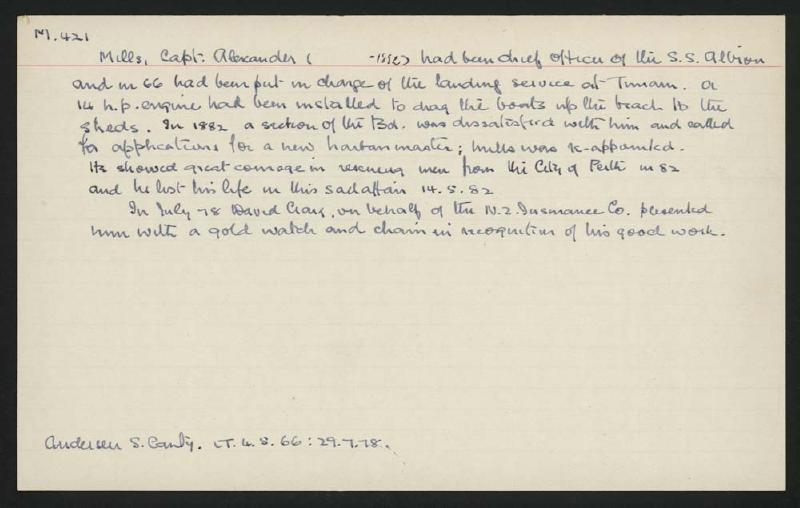 M.421
Mills, Capt. Alexander ( -1882) had been chief officer of the S.S. Albion
and in 66 had been put in charge of the landing service at Timaru. A
14 h.p. engine had been installed to drag the boats up the beach to the
sheds. In 1882 a section of the Bd. was dissatisfied with him and called
for applications for a new harbourmaster; Mills was re-appointed.
He showed great courage in rescuing men from the City of Perth in 82
and he lost his life in this sad affair 14.5.82
In July 78 David Craig, on behalf of the N.Z Insurance Co. presented
him with a gold watch and chain in recognition of his good work.
Andersen S. Canty. LT. 4.8.66: 29.7.78.